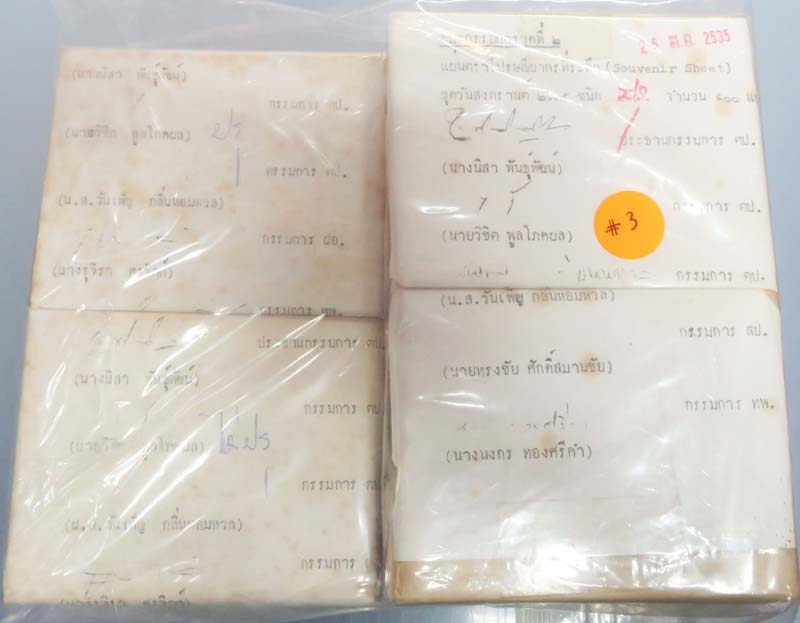 (นางนิสา พันธุ์พัฒน์)
กรรมการ คป.
(นายวิชิต พูลโภคผล) ปร
กรรมการ คป.
(น.ส.วันเพ็ญ กลิ่นหอมหวล)
กรรมการ ฝอ.
กรรมการ ทพ.
ประธานกรรมการ คป
(นางนิสา พันธุ์พัฒน์)
กรรมการ คป
(นายวิชิต พูลโภคผล) ไม่ปร
กรรมการ คป
(น.ส.วันเพ็ญ กลิ่นหอมหวล)
กรรมการ
25 มี.ค. 2535
แผ่นตราไปรษณียากรที่ระลึก (Souvenir Sheet)
ชุดวันสงกรานต์ ชนิด ปร จำนวน ๔๐๐ แ
ประธานกรรมการ คป.
(นางนิสา พันธุ์พัฒน์)
กรรมการ คป.
(นายวิชิต พูลโภคผล)
#3
กรรมการ คป.
(น.ส.วันเพ็ญ กลิ่นหอมหวล)
กรรมการ สป.
(นายทรงชัย ศักดิ์สมานชัย)
กรรมการ ทพ.
(นางนงกร ทองศรีคำ)